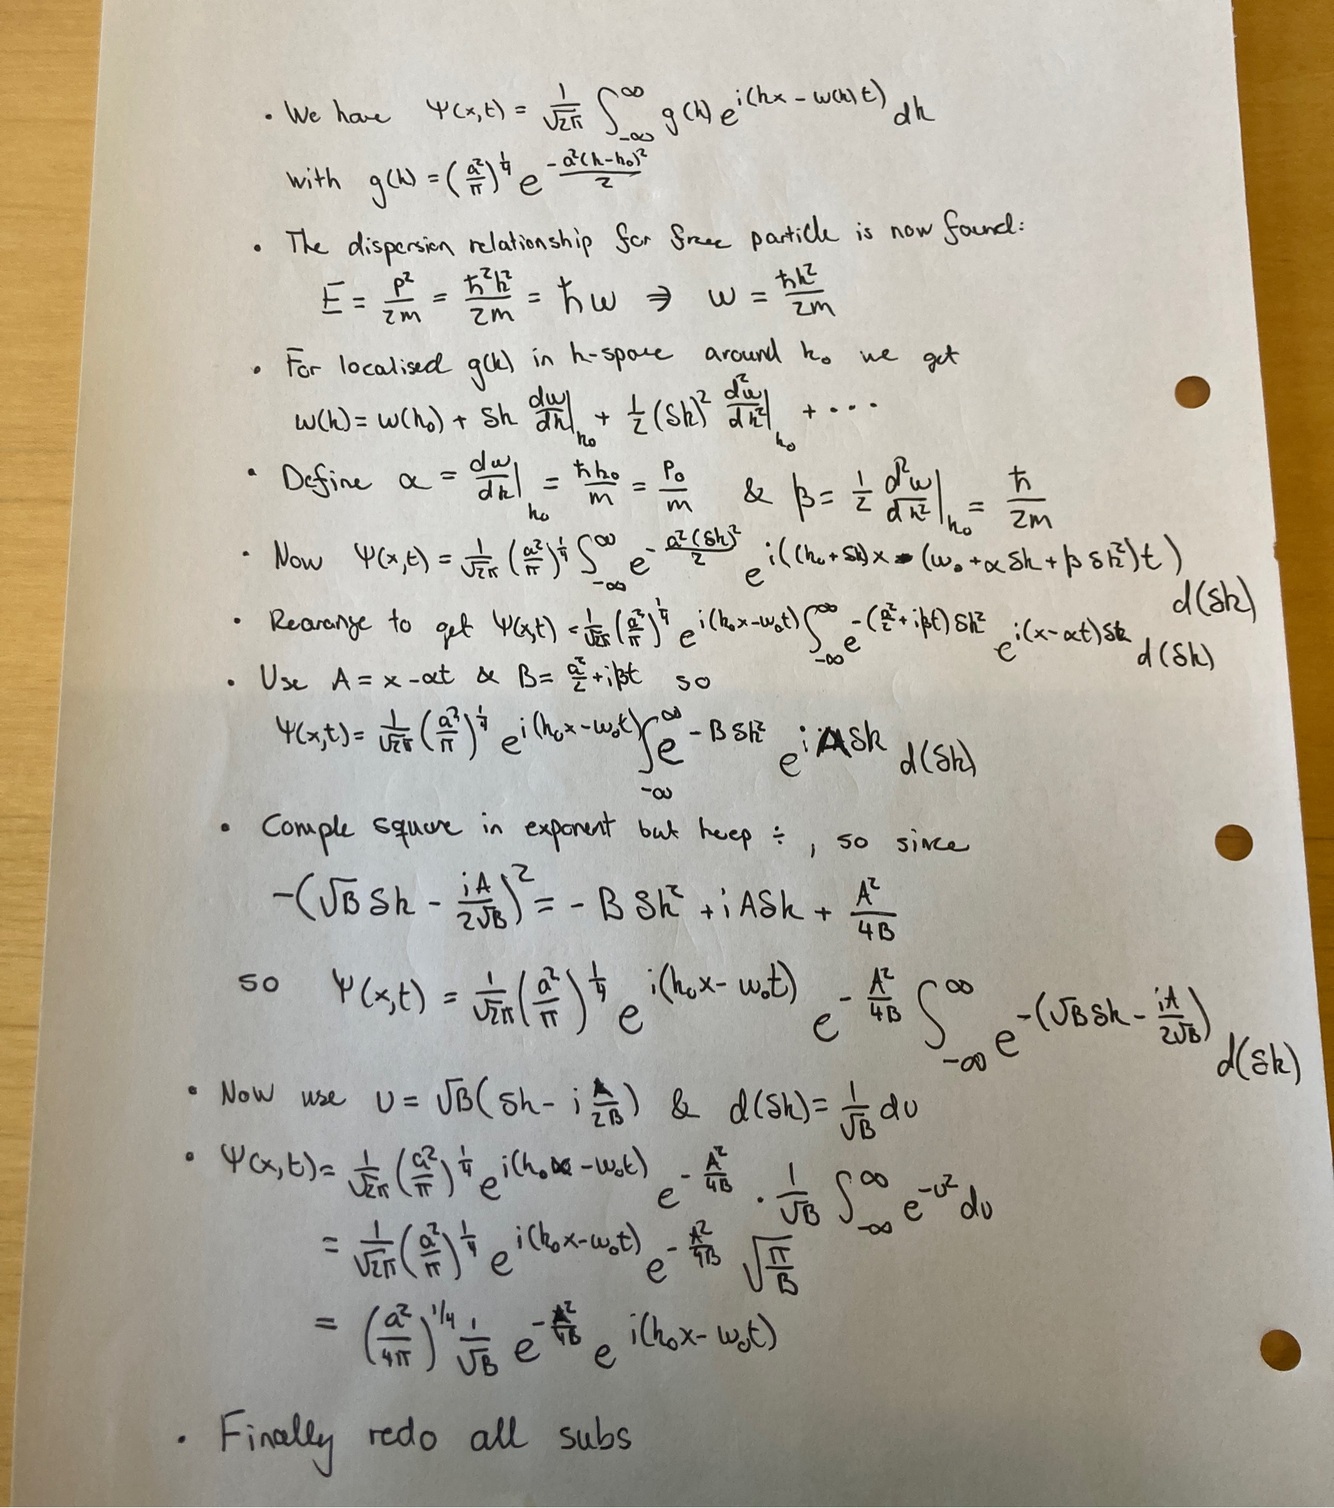 • We have Ψ(x,t) = 1/√2π ∫_{-∞}^{∞} g(k) e^{i(kx - ω(k)t)} dk
with g(k) = (a²/π)^{1/4} e^{-a²(k-k₀)²/2}
• The dispersion relationship for free particle is now found:
E = p²/2m = ħ²k²/2m = ħω ⇒ ω = ħk²/2m
• For localised g(k) in k-space around k₀ we get
ω(k) = ω(k₀) + δk dω/dk|_{k₀} + 1/2 (δk)² d²ω/dk²|_{k₀} + ···
• Define α = dω/dk|_{k₀} = ħk₀/m = p₀/m & β = 1/2 d²ω/dk²|_{k₀} = ħ/2m
• Now Ψ(x,t) = 1/√2π (a²/π)^{1/4} ∫_{-∞}^{∞} e^{-a²(δk)²/2} e^{i((k₀+δk)x - (ω₀+αδk+βδk²)t)} d(δk)
• Rearange to get Ψ(x,t) = 1/√2π (a²/π)^{1/4} e^{i(k₀x-ω₀t)} ∫_{-∞}^{∞} e^{-(a²/2+iβt)δk²} e^{i(x-αt)δk} d(δk)
• Use A = x-αt & B = a²/2+iβt so
Ψ(x,t) = 1/√2π (a²/π)^{1/4} e^{i(k₀x-ω₀t)} ∫_{-∞}^{∞} e^{-Bδk²} e^{iAδk} d(δk)
• Comple square in exponent but keep ÷, so since
-(√B δk - iA/2√B)² = -Bδk² + iAδk + A²/4B
so Ψ(x,t) = 1/√2π (a²/π)^{1/4} e^{i(k₀x-ω₀t)} e^{-A²/4B} ∫_{-∞}^{∞} e^{-(√Bδk - iA/2√B)} d(δk)
• Now use u = √B(δk - i A/2B) & d(δk) = 1/√B du
• Ψ(x,t) = 1/√2π (a²/π)^{1/4} e^{i(k₀x-ω₀t)} e^{-A²/4B} · 1/√B ∫_{-∞}^{∞} e^{-u²} du
= 1/√2π (a²/π)^{1/4} e^{i(k₀x-ω₀t)} e^{-A²/4B} √(π/B)
= (a²/4π)^{1/4} 1/√B e^{-A²/4B} e^{i(k₀x-ω₀t)}
• Finally redo all subs